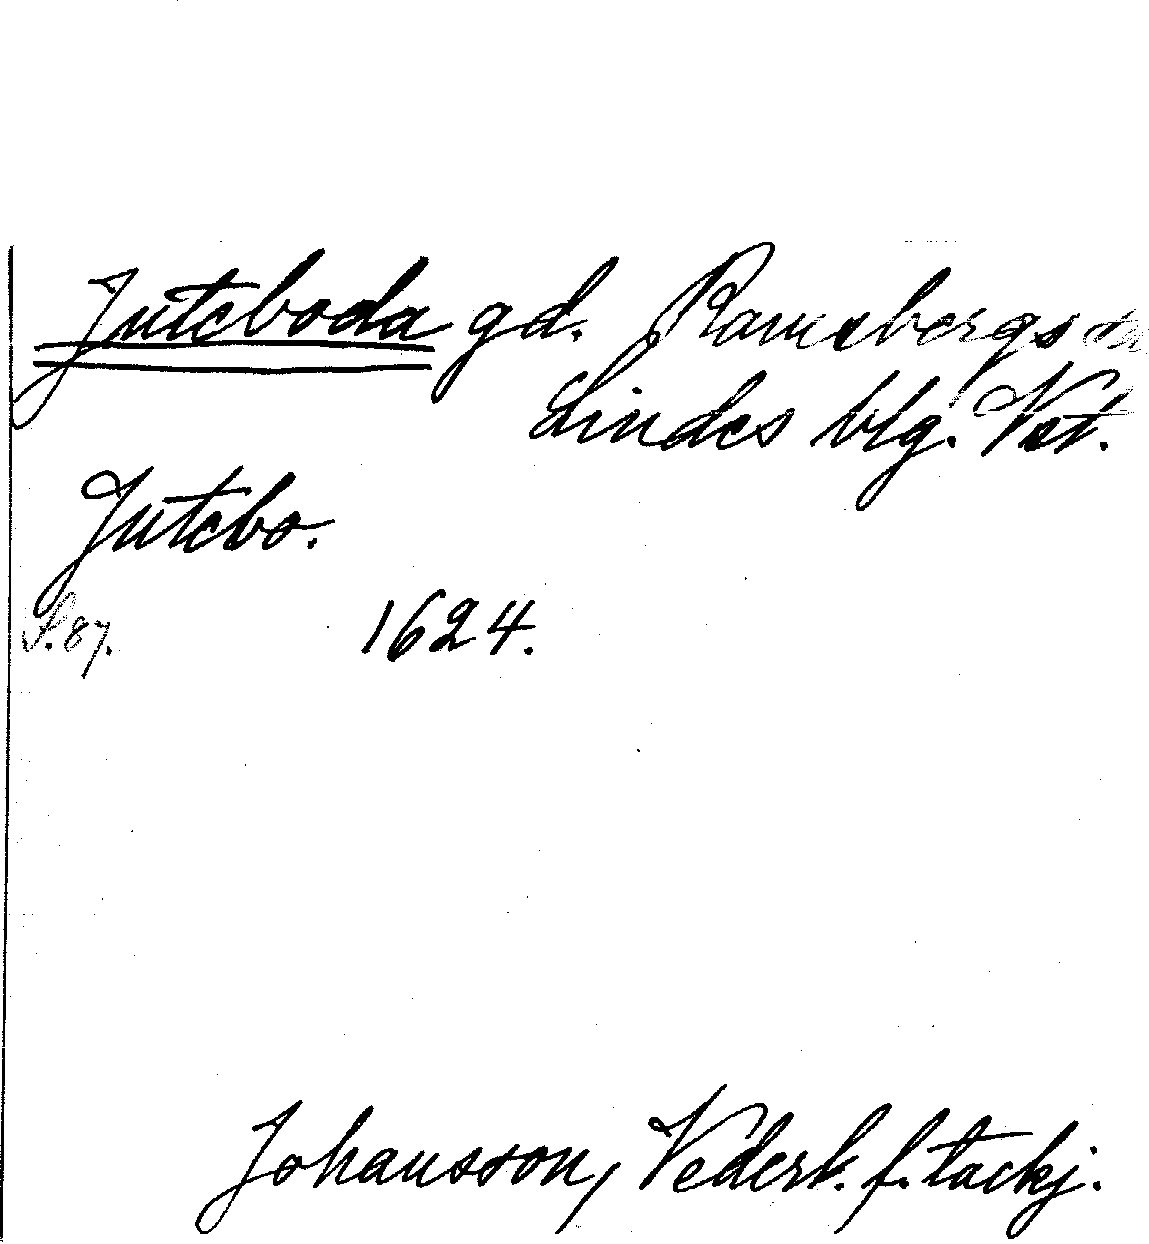 Juteboda gd. Ramsbergs sn
Lindes blg. Vst.
Jutebo.
S. 87. 1624.
Johansson, Vederk. f. tackj.